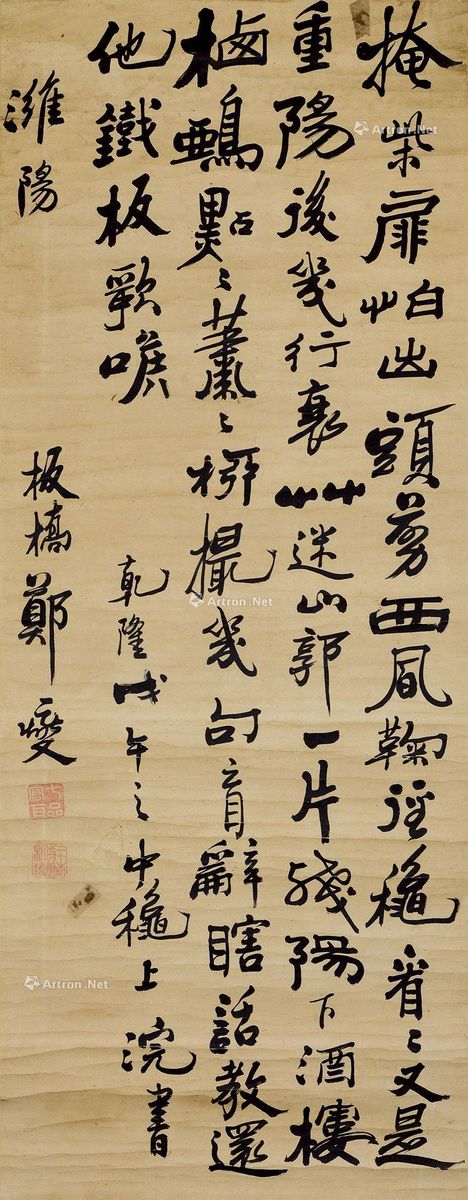 掩柴扉怕出頭剪西風鞠徑穐看〻又是
重陽後幾行衰艸迷山郭一片殘陽下酒樓
栖鵶點〻蕭〻柳撮幾句盲辭瞎話教還
他鐵板歌喉
乾隆戊午之中穐上浣書
濰陽
板橋鄭燮
七品官耳
Artron.Net
Artron.Net
Artron.Net
Artron.Net